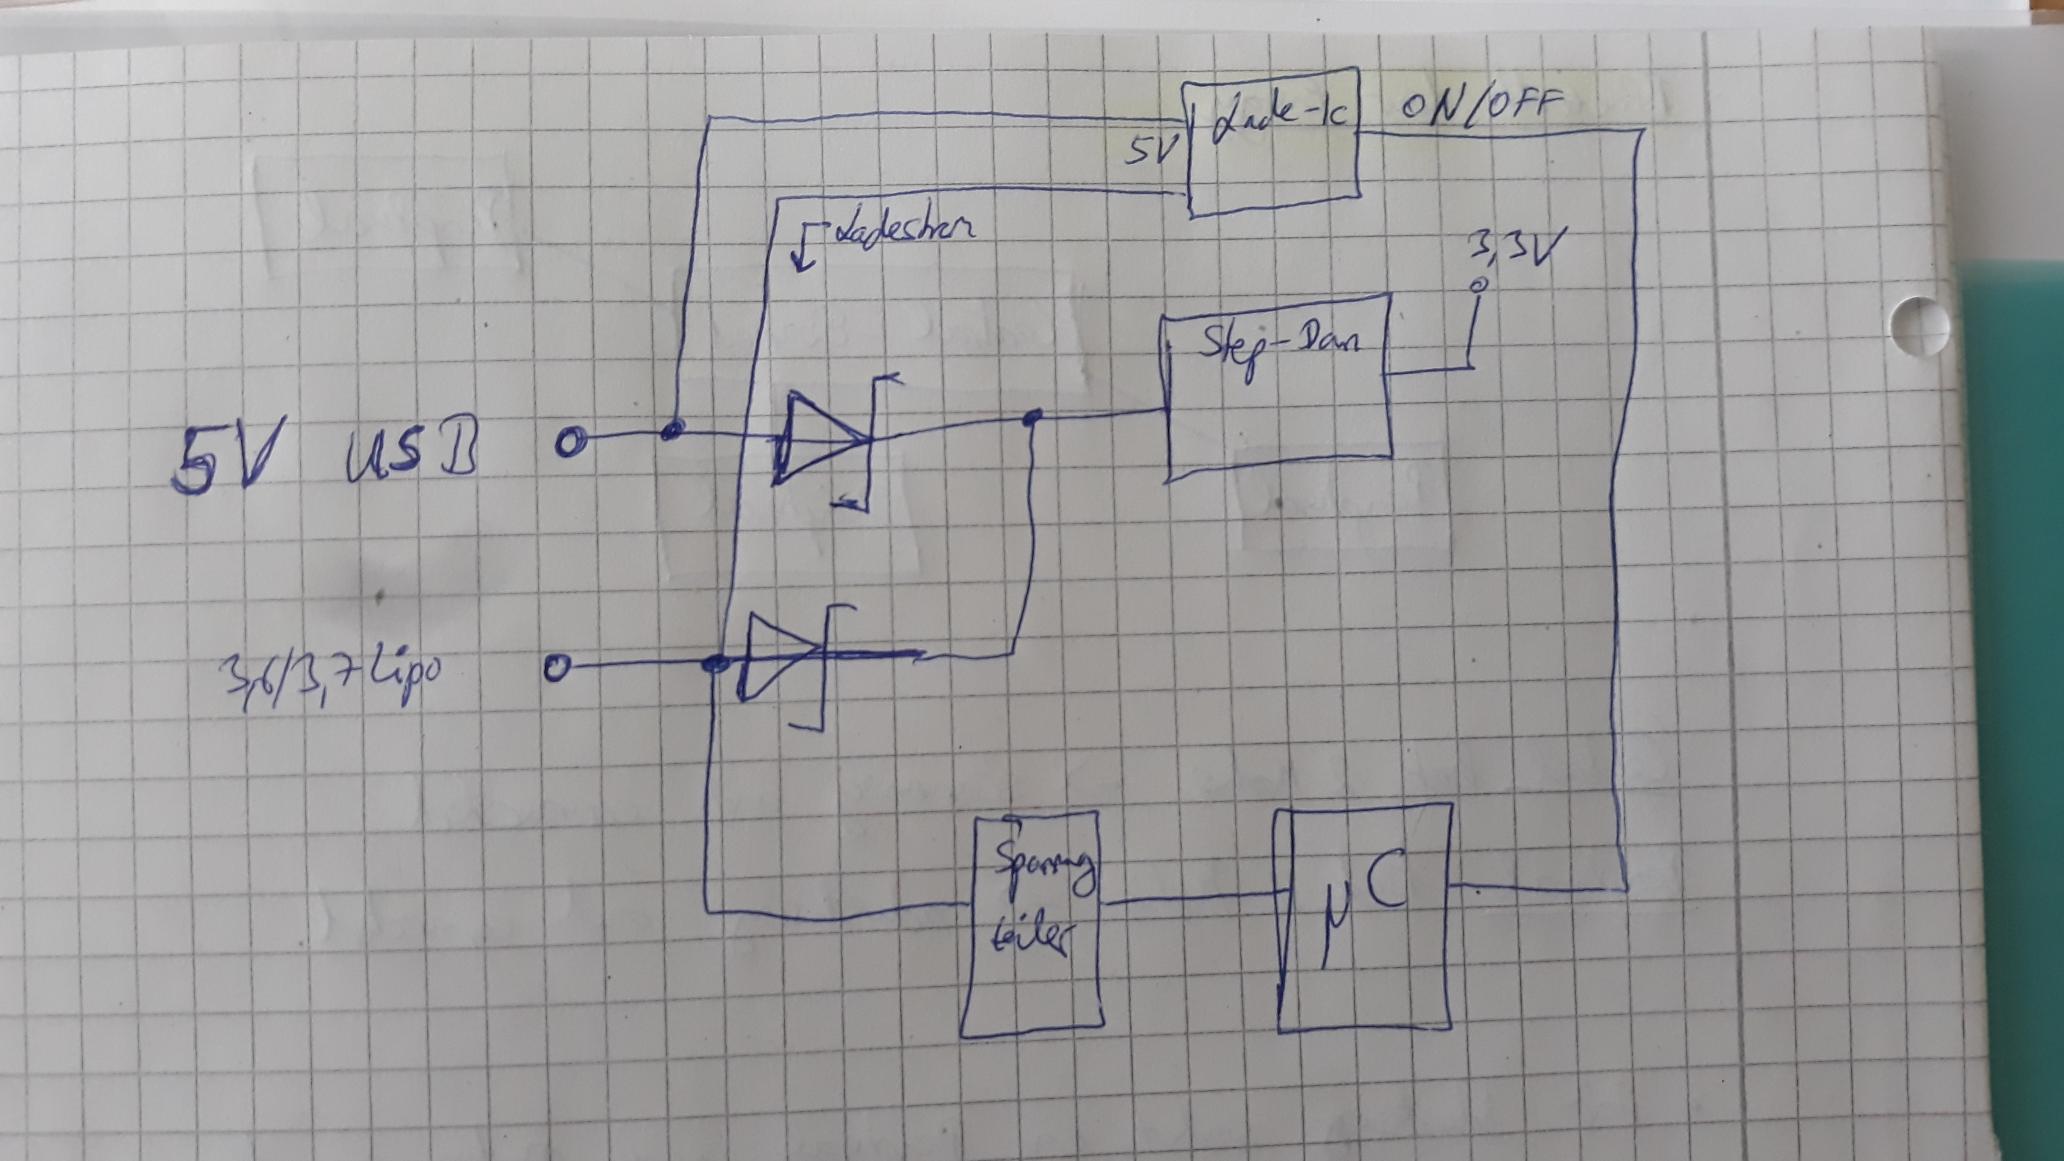 Lade-Ic
ON/OFF
5V
Ladestrom
3,3V
Step-Down
5V USB
3,6/3,7 Lipo
Spannung
teiler
µC